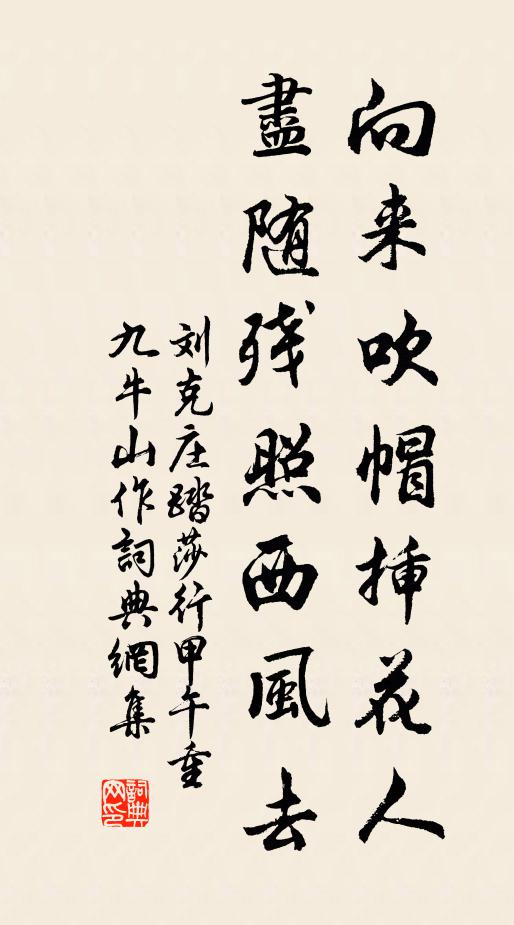 向来吹帽挿花人
盡随残照西風去
刘克庄踏莎行甲午重
九牛山作詞典網集
詞典网印